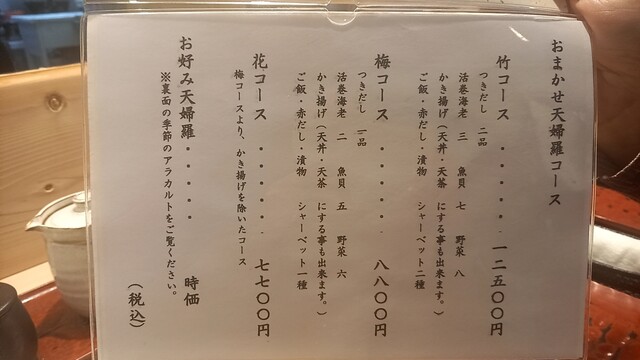 おまかせ天婦羅コース
竹コース・・・・・・一二五〇〇円
つきだし 二品
活巻海老 三 魚貝 七 野菜 八
かき揚げ(天丼・天茶 にする事も出来ます。)
ご飯・赤だし・漬物 シャーベット二種
梅コース・・・・・・八八〇〇円
つきだし 一品
活巻海老 二 魚貝 五 野菜 六
かき揚げ(天丼・天茶 にする事も出来ます。)
ご飯・赤だし・漬物 シャーベット一種
花コース・・・・・・七七〇〇円
梅コースより、かき揚げを除いたコース
お好み天婦羅・・・・・時価
※裏面の季節のアラカルトをご覧ください。
(税込)